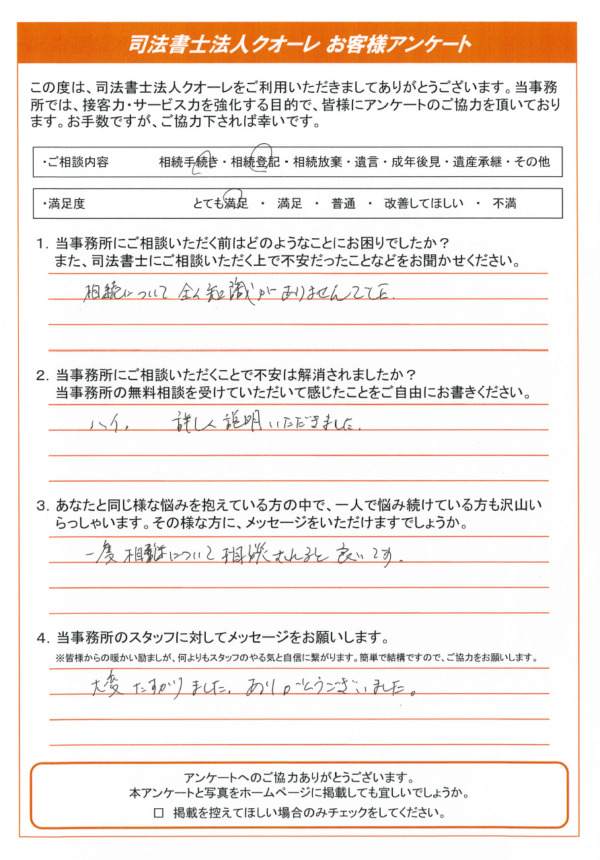 司法書士法人クオーレ お客様アンケート
この度は、司法書士法人クオーレをご利用いただきましてありがとうございます。当事務
所では、接客力・サービス力を強化する目的で、皆様にアンケートのご協力を頂いており
ます。お手数ですが、ご協力下されば幸いです。
・ご相談内容 相続手続き・相続登記・相続放棄・遺言・成年後見・遺産承継・その他
・満足度 とても満足 ・ 満足 ・ 普通 ・ 改善してほしい ・ 不満
1. 当事務所にご相談いただく前はどのようなことにお困りでしたか？
また、司法書士にご相談いただく上で不安だったことなどをお聞かせください。
相続について 全く知識がありませんでした.
2. 当事務所にご相談いただくことで不安は解消されましたか？
当事務所の無料相談を受けていただいて感じたことをご自由にお書きください。
ハイ。 詳しく説明いただきました.
3. あなたと同じ様な悩みを抱えている方の中で、一人で悩み続けている方も沢山い
らっしゃいます。その様な方に、メッセージをいただけますでしょうか。
一度 相続について 相談されると 良いです.
4. 当事務所のスタッフに対してメッセージをお願いします。
※皆様からの暖かい励ましが、何よりもスタッフのやる気と自信に繋がります。簡単で結構ですので、ご協力をお願いします。
大変 たすかりました. ありがとうございました。
アンケートへのご協力ありがとうございます。
本アンケートと写真をホームページに掲載しても宜しいでしょうか。
□ 掲載を控えてほしい場合のみチェックをしてください。